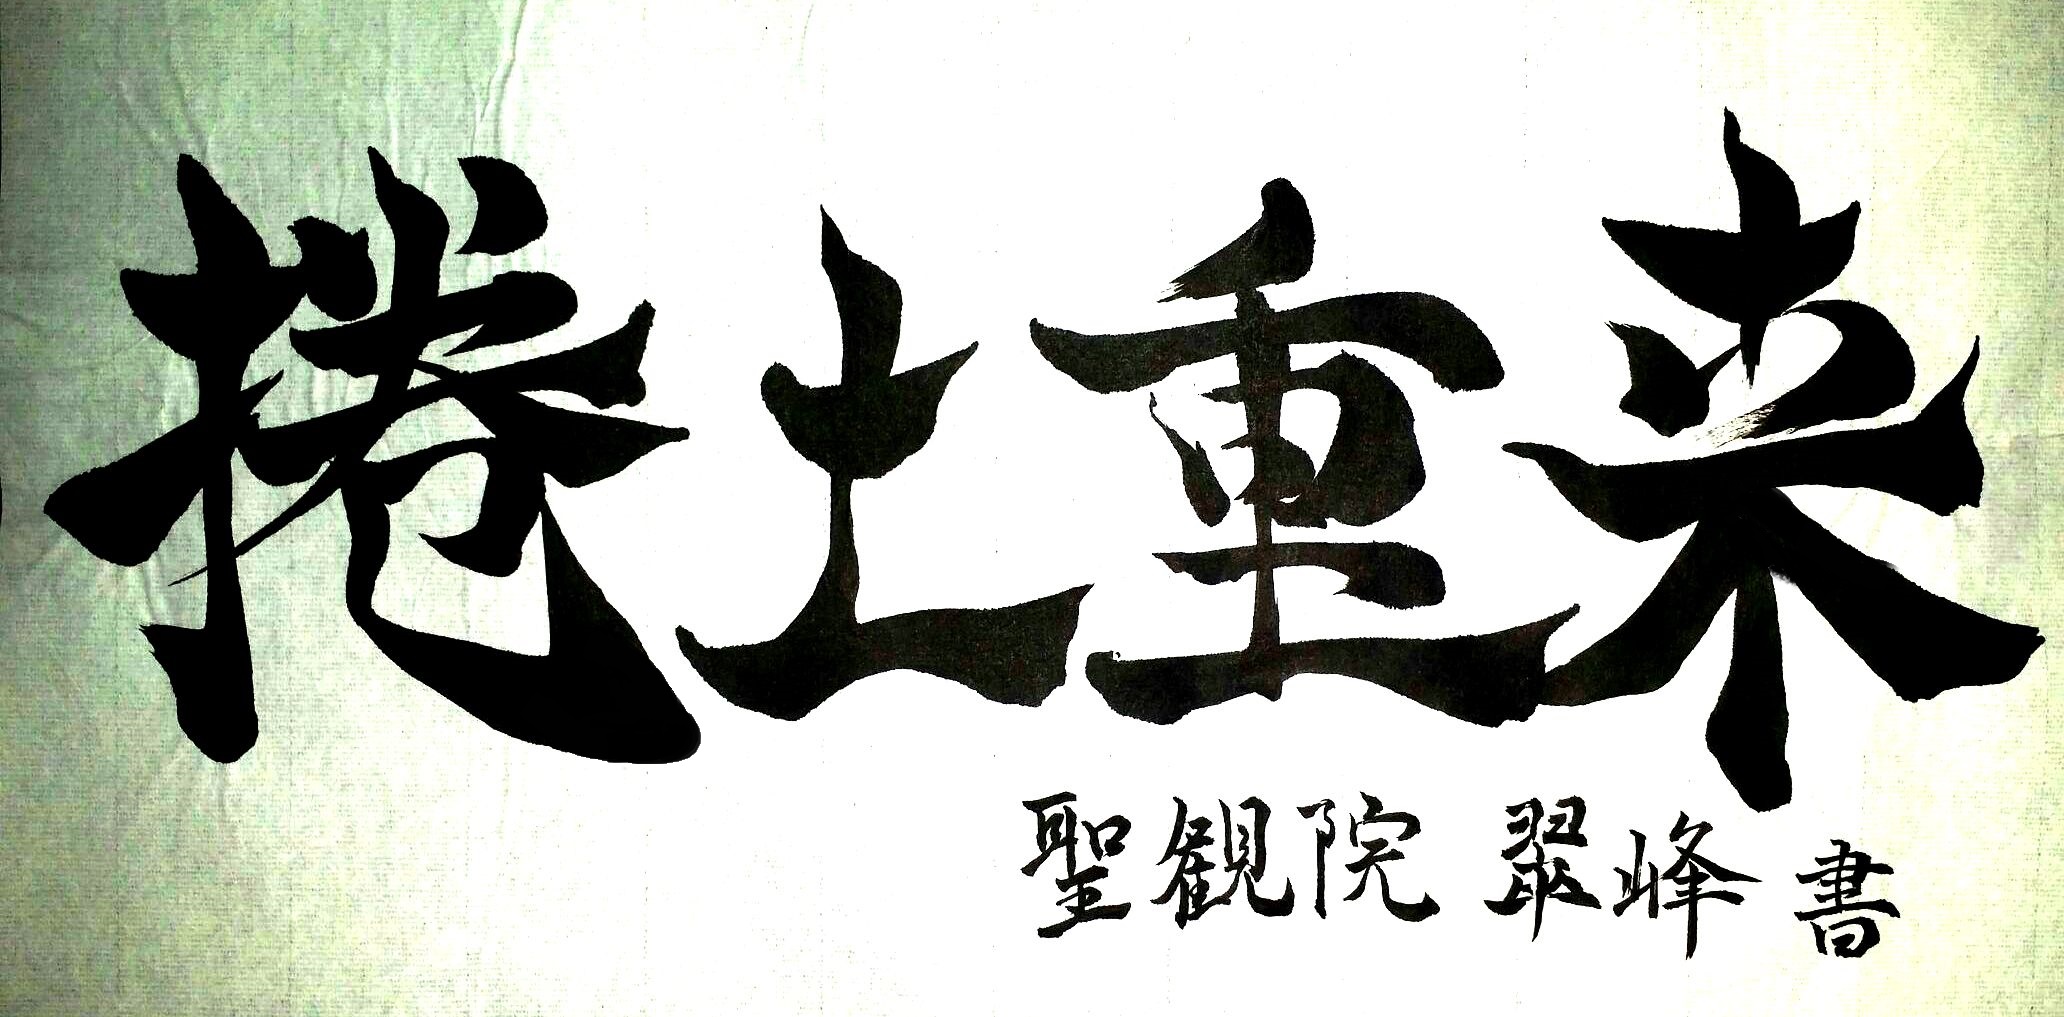 捲土重来
聖観院 翠峰 書